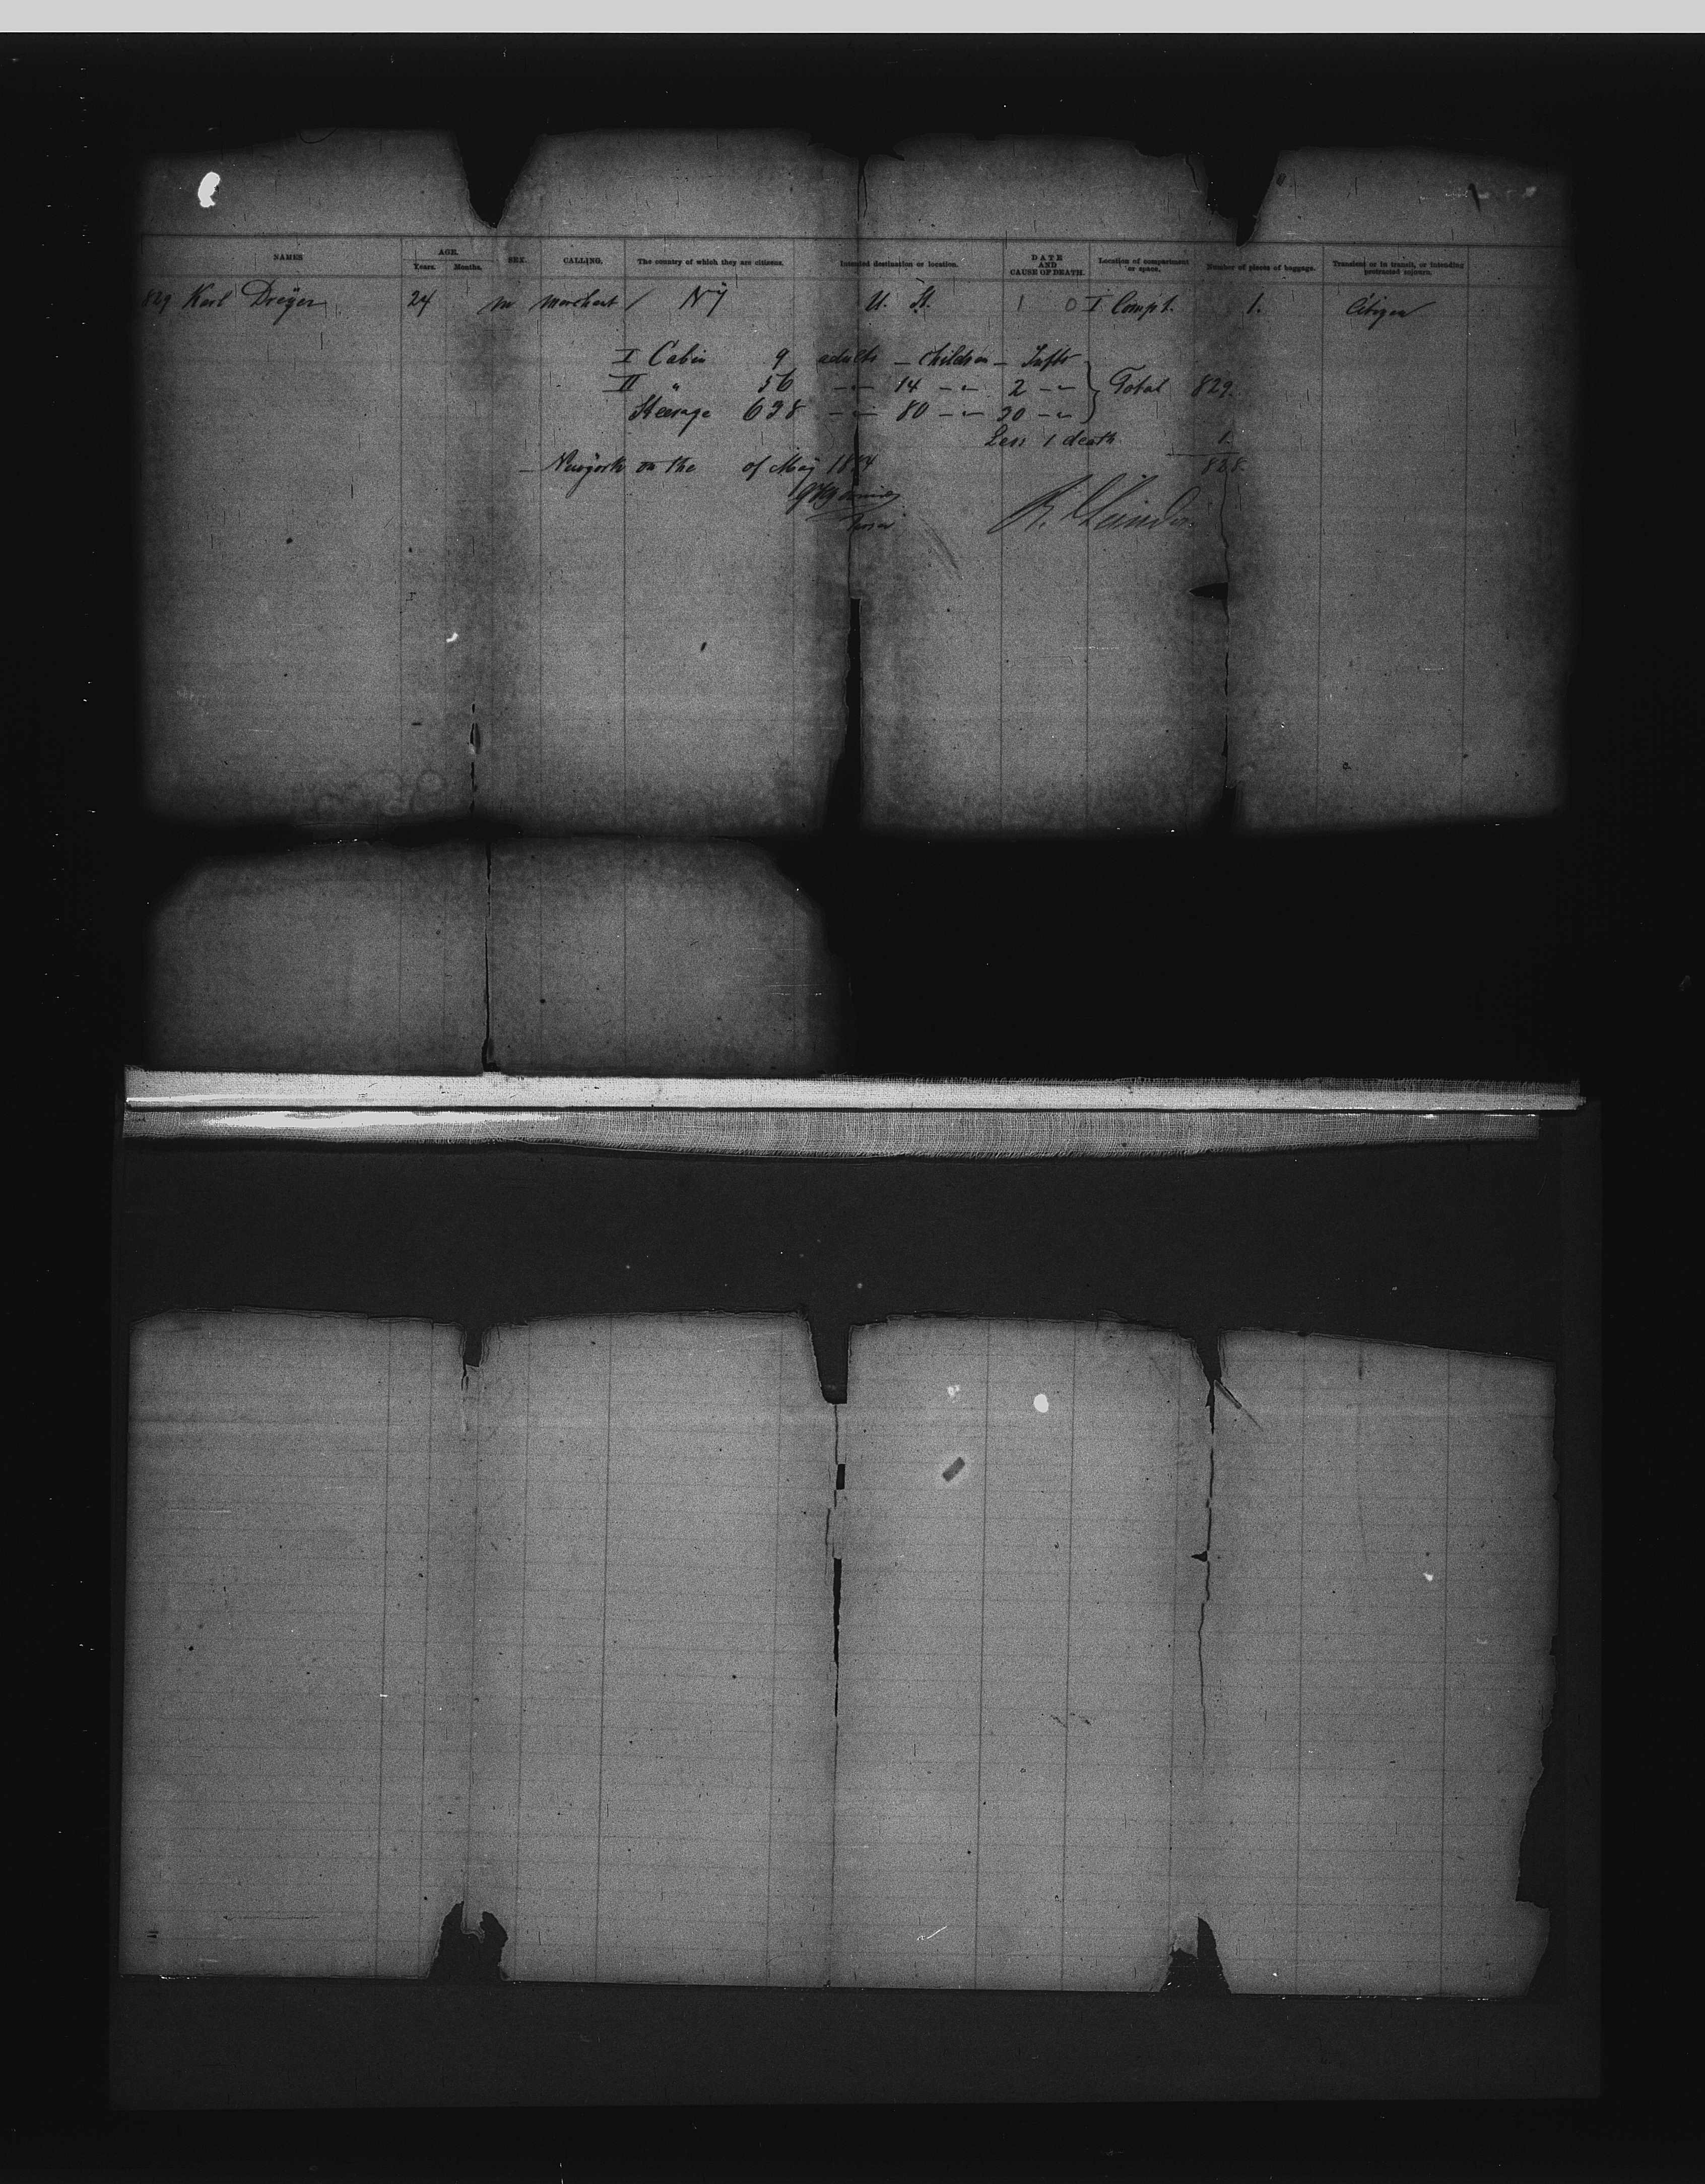 NAMES AGE. Years. Months. SEX. CALLING. The country of which they are citizens. Intended destination or location. DATE AND CAUSE OF DEATH. Location of compartment or space. Number of pieces of baggage. Transient or in transit, or intending protracted sojourn.
829 Karl Dreÿer 24 m merchant / NY U. St. 1 0 I Compt. 1. Citizen
I Cabin 9 adults – children – Infts
II " 56 – " – 14 – " – 2 – " – Total 829.
Steerage 638 – " – 80 – " – 30 – " –
Less 1 death 1.
828.
Newÿork on the of Maÿ 18